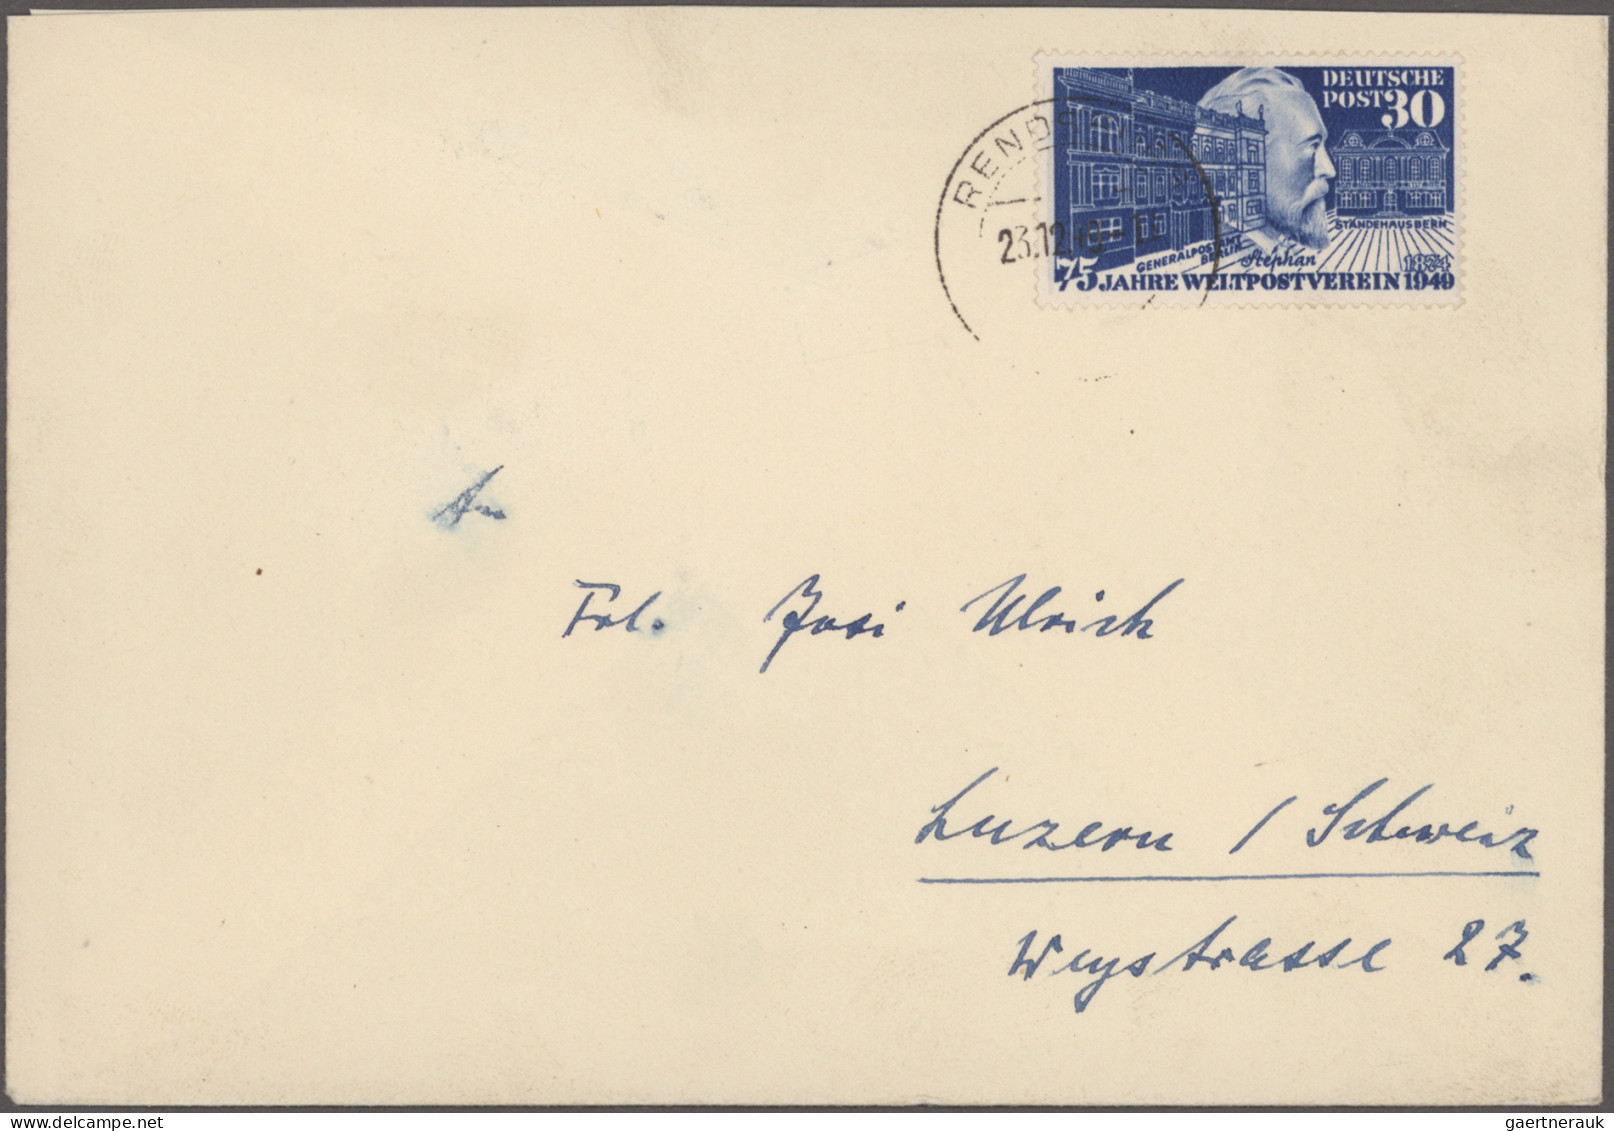 DEUTSCHE
POST 30
RENDSBURG
23.12.49-15
STÄNDEHAUS BERN
GENERALPOSTAMT
BERLIN
Stephan
1874
75 JAHRE WELTPOSTVEREIN 1949
An
Frl. Josi Ulrich
Luzern / Schweiz
Weystrasse 27.
gaertnerauk @ delcampe.net